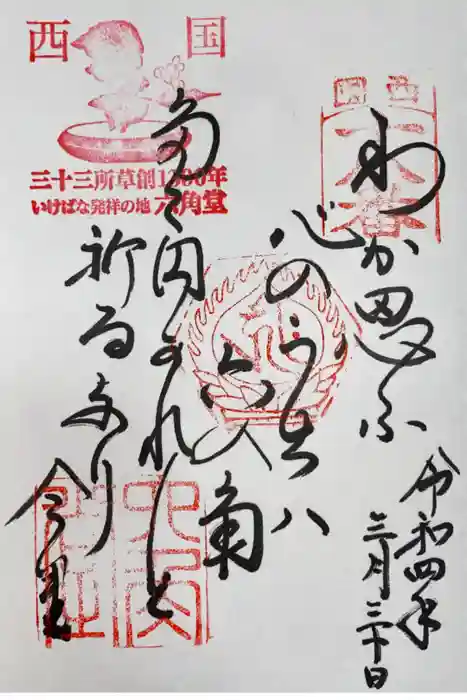 西国
三十三所草創1300年
いけばな発祥の地 六角堂
西国
十八番
わか思ふ
心のうちハ
六の角
たゝ円かれと
祈るなり
令和四年
三月三十日